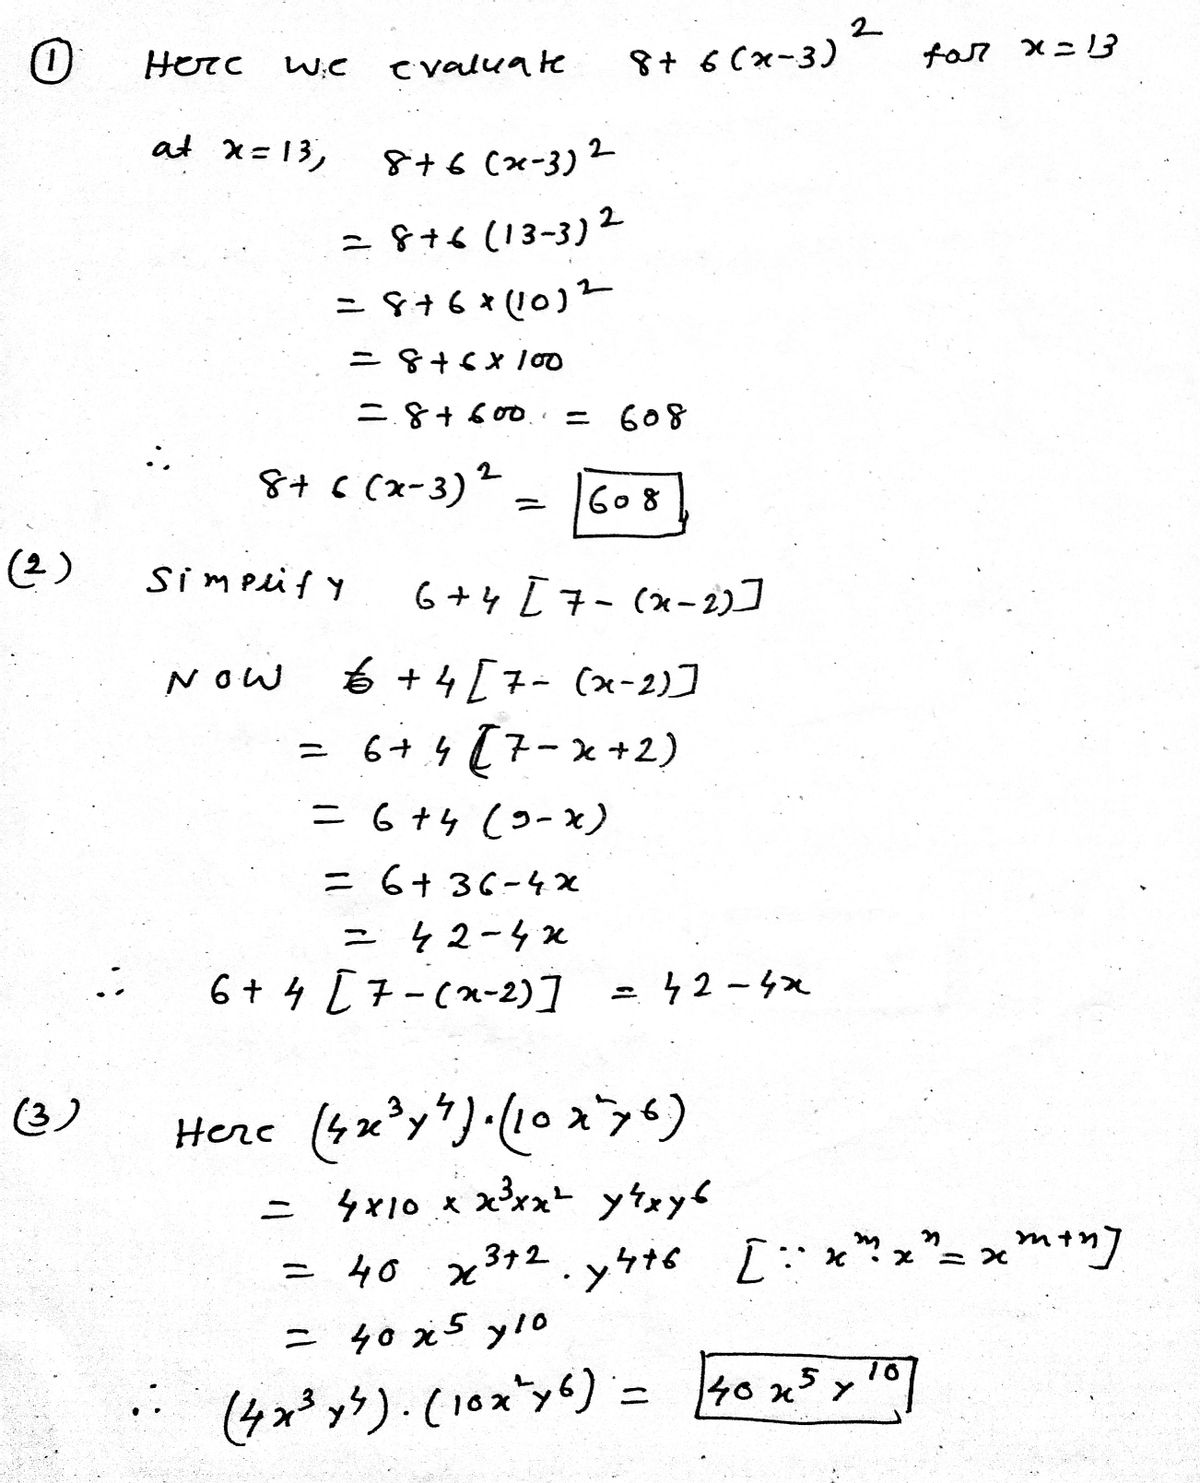 ① Here we evaluate 8+6(x-3)² for x=13
at x=13, 8+6(x-3)²
= 8+6(13-3)²
= 8+6×(10)²
= 8+6×100
= 8+600 = 608
∴ 8+6(x-3)² = 608
(2) Simplify 6+4[7-(x-2)]
Now 6+4[7-(x-2)]
= 6+4[7-x+2)
= 6+4(9-x)
= 6+36-4x
= 42-4x
∴ 6+4[7-(x-2)] = 42-4x
(3) Here (4x³y⁴)·(10x²y⁶)
= 4×10 × x³×x² y⁴×y⁶
= 40 x³⁺².y⁴⁺⁶ [∵ xᵐ·xⁿ=xᵐ⁺ⁿ]
= 40x⁵y¹⁰
∴ (4x³y⁴).(10x²y⁶) = 40x⁵y¹⁰